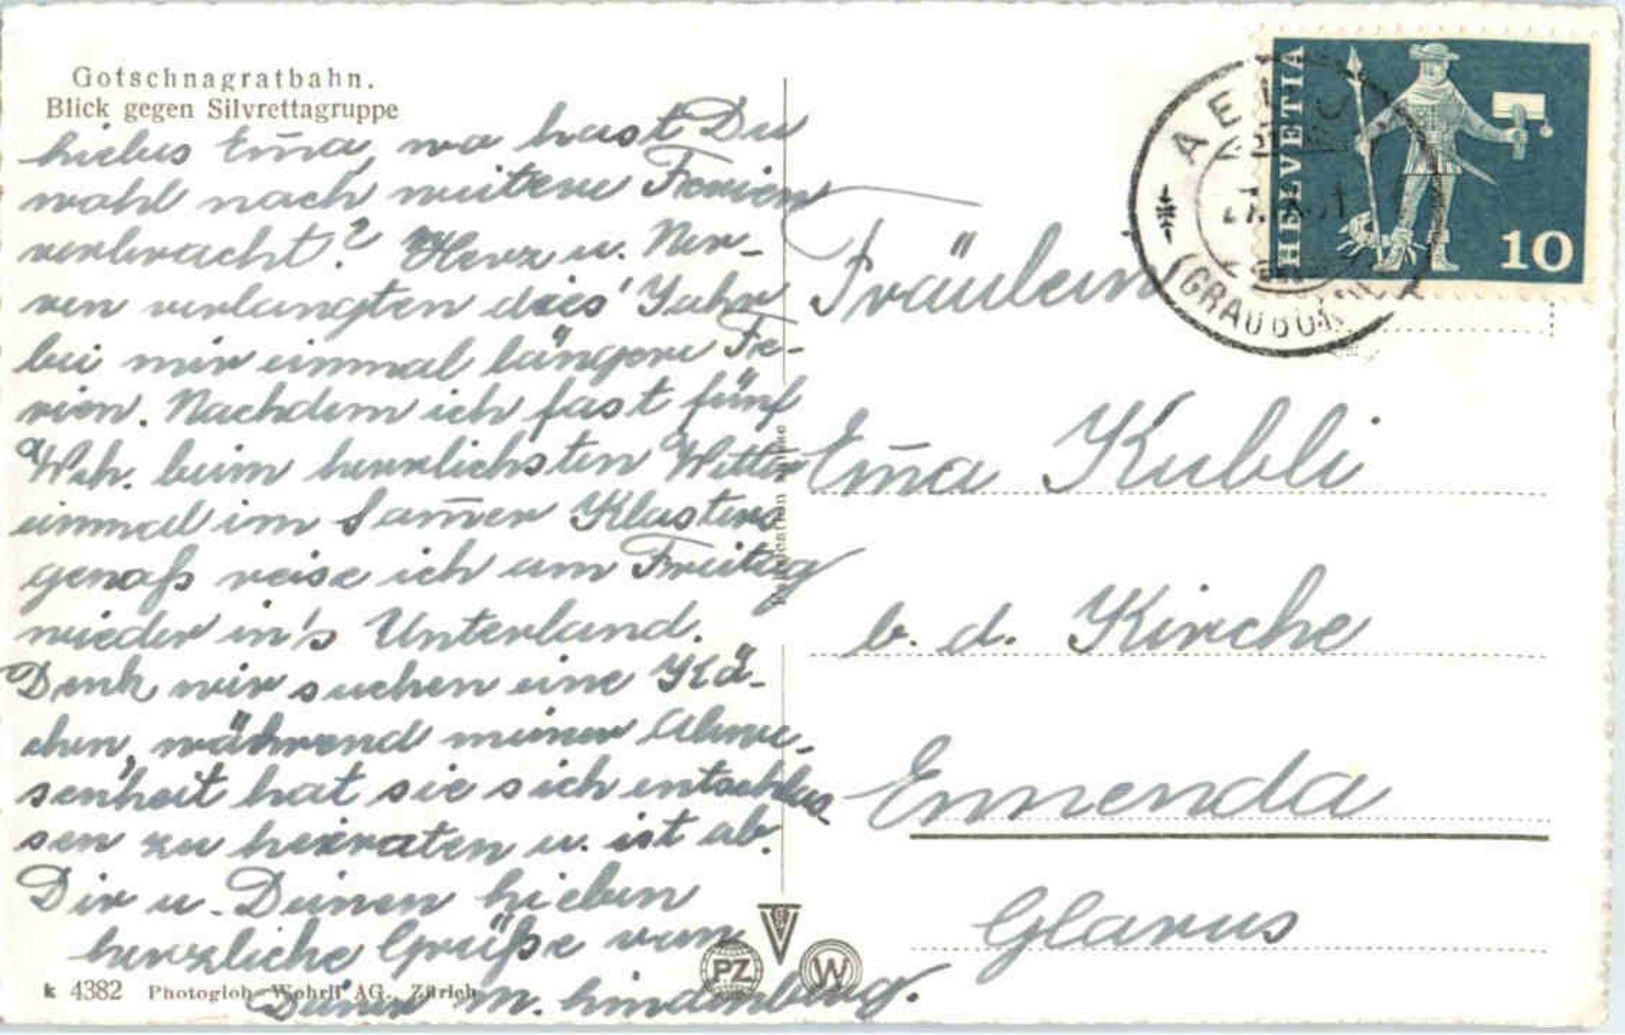 Gotschnagratbahn.
Blick gegen Silvrettagruppe
Liebes Em̄a, wo hast Du
wohl nach weitere Ferien
verbracht? Herz u. Ner-
ven verlangten dies' Jahr
bei mir einmal längere Fe-
rien. Nachdem ich fast fünf
Wch. beim herrlichsten Wetter
einmal im Som̄er Klosters
genoß reise ich am Freitag
wieder in's Unterland.
Denk, wir suchen eine Kö-
chin, während meiner Abwe-
senheit hat sie sich entschlos-
sen zu heiraten u. ist ab.
Dir u. Deinen lieben
herzliche Grüße von
Deiner M. Lindenberg.
k 4382 Photoglob-Wehrli AG., Zürich
PZ
W
HELVETIA
10
(GRAUBÜNDEN)
Fräulein
Em̄a Kubli
b. d. Kirche
Ennenda
Glarus